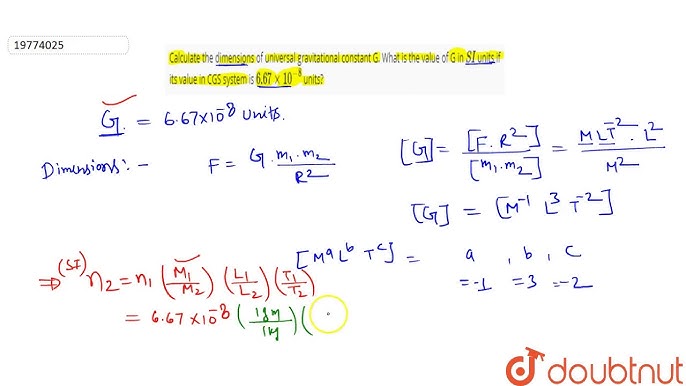 19774025
Calculate the dimensions of universal gravitational constant G. What is the value of G in SI units if
its value in CGS system is 6.67 × 10⁻⁸ units?
G. = 6.67×10⁻⁸ units.
Dimensions:- F = G.m₁.m₂/R²
[G] = [F.R²]/[m₁.m₂] = MLT⁻².L²/M²
[G] = [M⁻¹ L³ T⁻²]
[Mᵃ Lᵇ Tᶜ] = a , b , c
=-1 =3 =-2
⇒ (SI) n₂ = n₁ (M₁/M₂) (L₁/L₂) (T₁/T₂)
= 6.67×10⁻⁸ (1gm/1kg) (
doubtnut